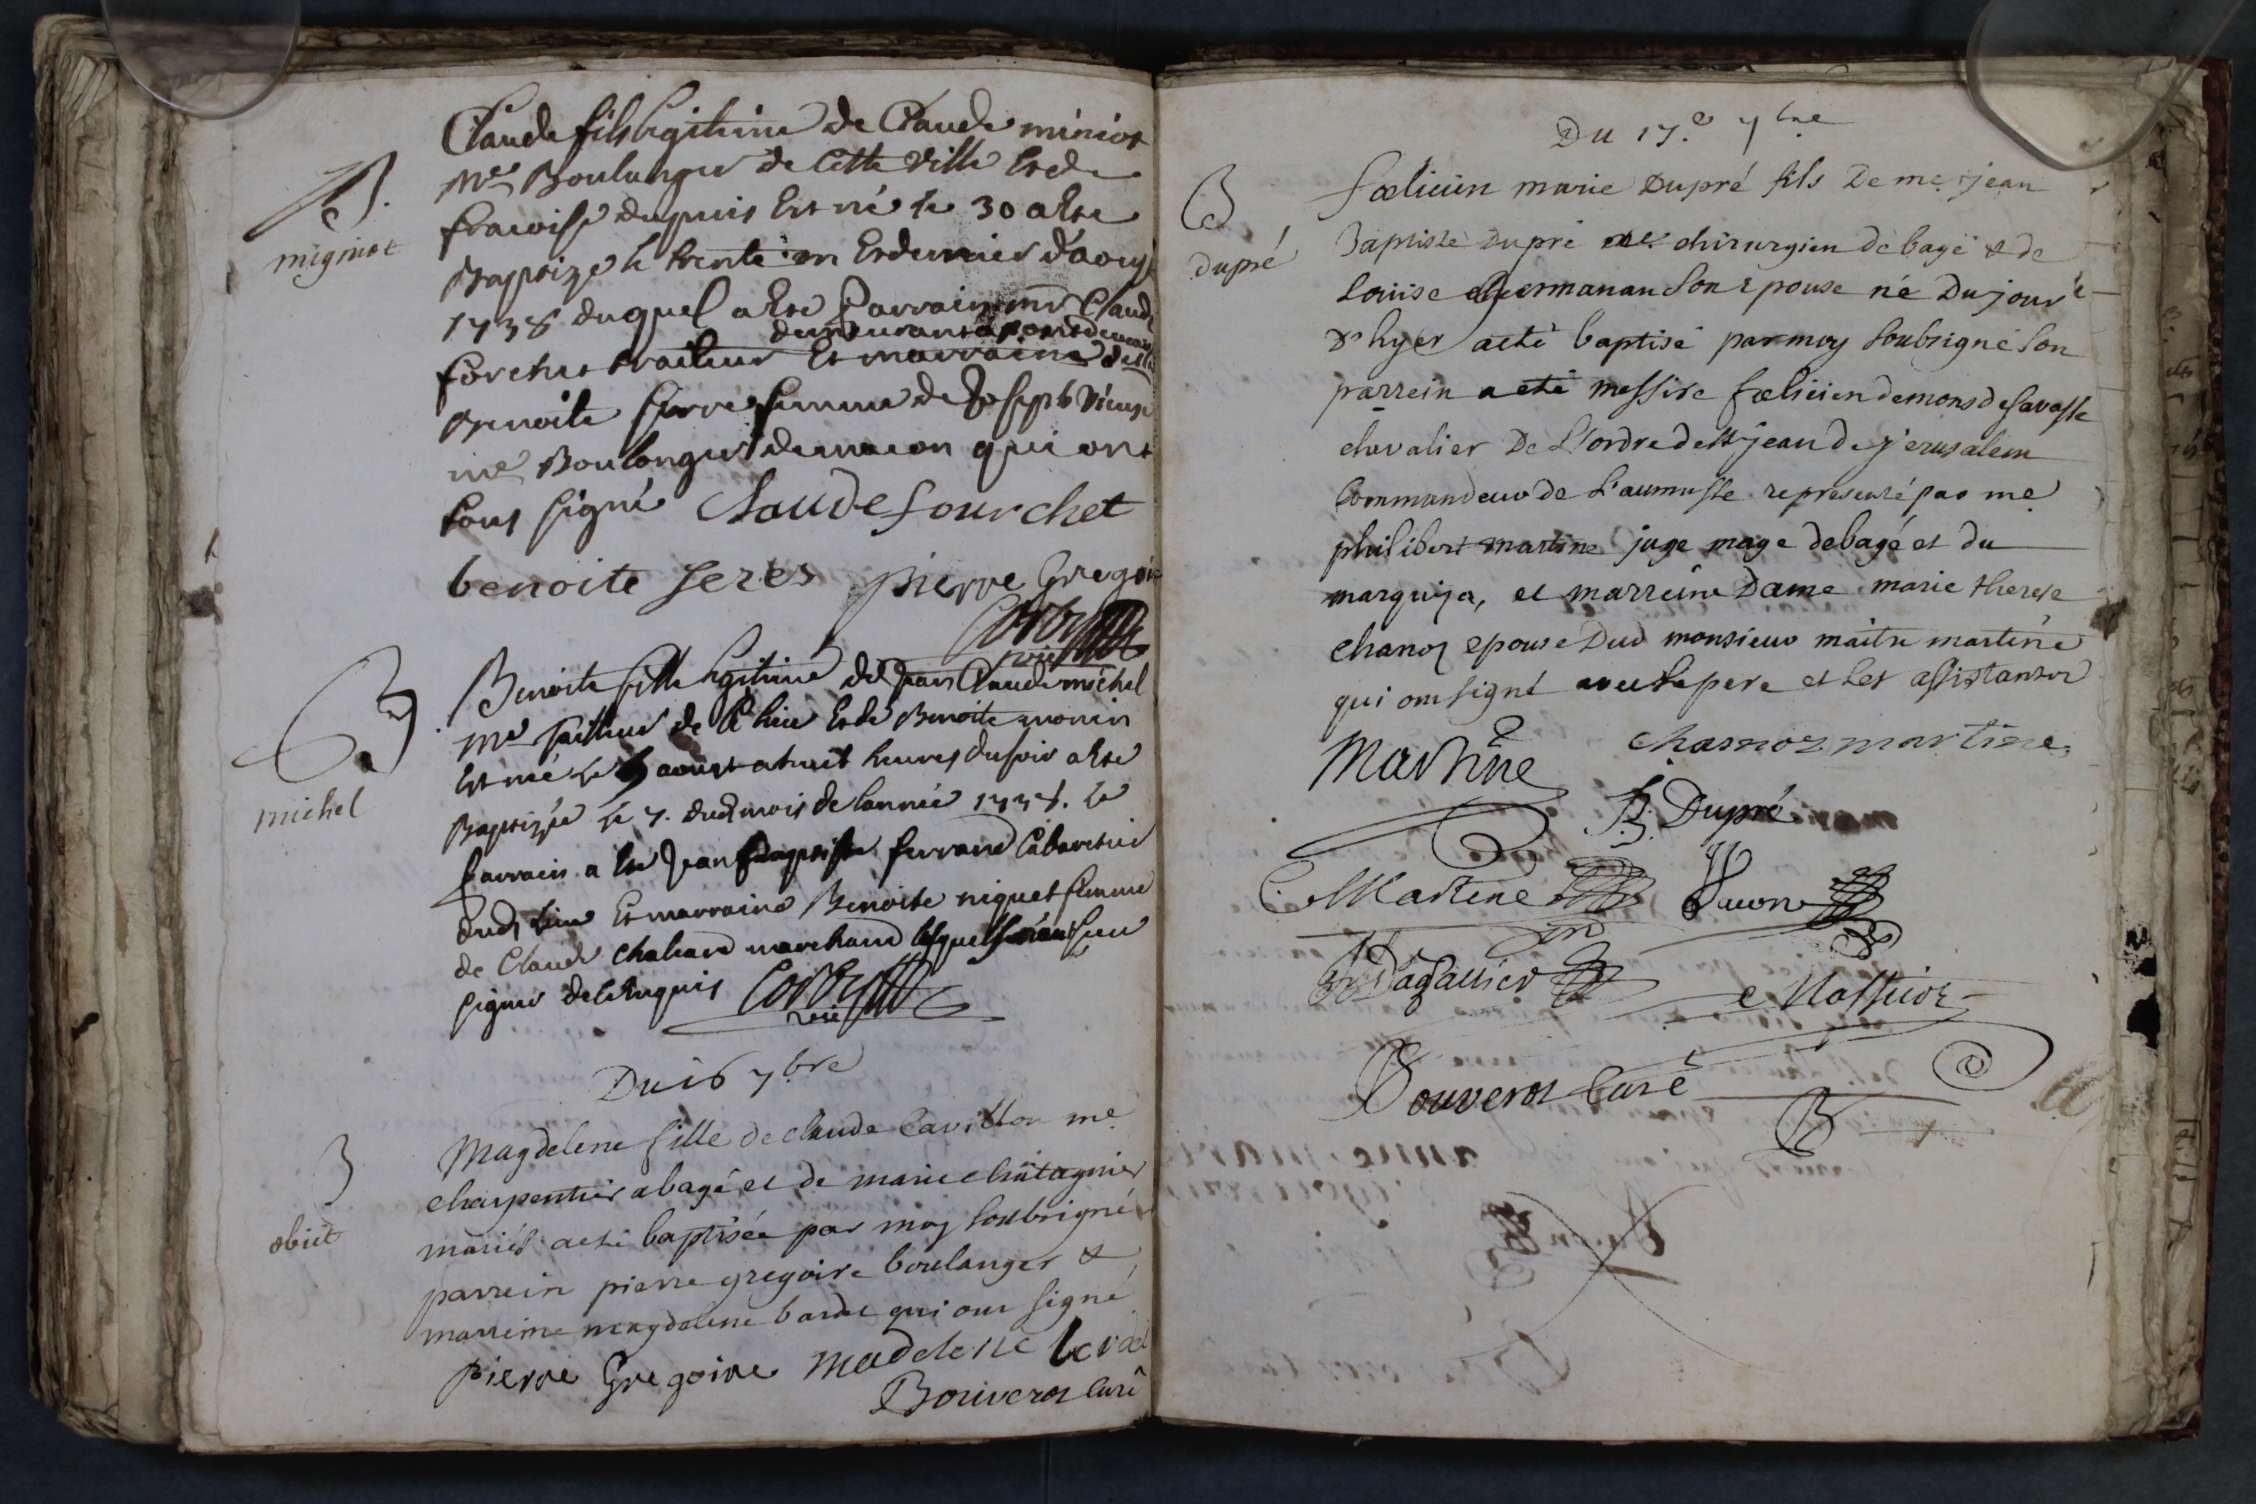 B.
migniot
Claude fils legitime de Claude miniot
Me Boulanger de cette ville et de
francoise dupuis est né le 30 a ete
Baptizé le trente un et dernier d'aoust
1738 duquel a ete parrain mr Claude
demeurant a pont de
forchet traiteur et marraine
Benoite serre femme de Joseph
me Boulonger de macon qui ont
tous signé Claude fourchet
benoite seres pierre Gregoire
B
michel
Benoite fille legitime de Jean Claude michel
Me tailleur de ce lieu et de Benoite monin
est née le aoust a huit heures du soir a ete
Baptizée le 7. dud mois de lannée 1738. le
parrain a ete Jean Baptiste ferrand Cabaretier
dud lieu et marraine Benoite niquet femme
de Claude chaland marchand lesquels n'ont sceu
signer de ce enquis
Du 16 7bre
B
obiit
Magdelene fille de claude Cavillon me
charpentier a bagé et de marie châtagnier
mariés a eté baptisée par moy soubsigné
parrein pierre gregoire boulanger &
marreine magdelene bardet qui ont signé
pierre Gregoire Madelene
Bouverot Curé
Du 17.e 7bre
B
dupré
foelicien marie Dupré fils De me jean
Baptiste Dupré me chirurgien de bagé & de
Louise son epouse né Du jour
d'hyer a eté baptisé par moy soubsigné son
parrein a eté messire foelicien de mons de savasse
chevalier De L'ordre de St jean de jerusalem
Commandeur de L'aumusse representé par me
philibert martine juge mage de bagé et du
marquisa, et marreine Dame marie therese
chanoz epouse Dud monsieur maitre martine
qui ont signé avec le pere et les assistants
Martine
chasnoz martine
JB. Dupré
Martine
Dagallier
Bouverot Curé